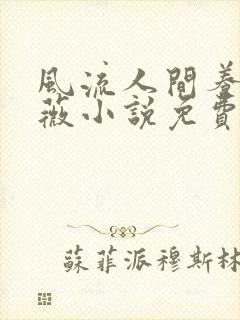 風流人間養
薇小說免費
蘇菲派穆斯林